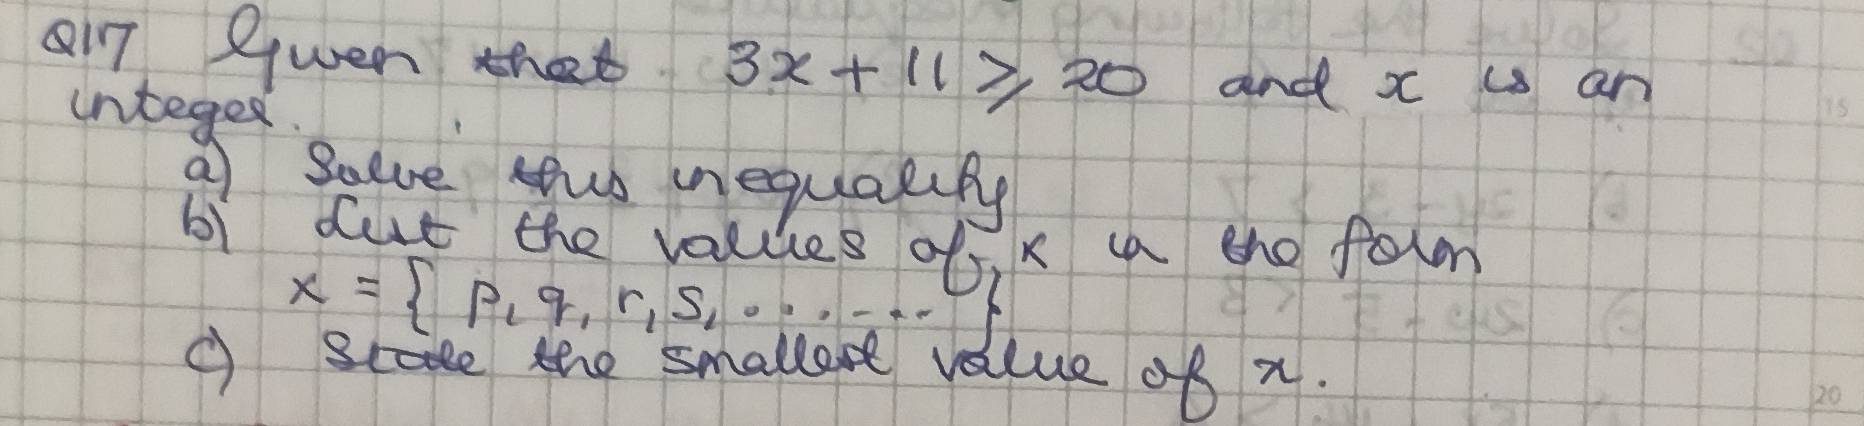 Q17 Given that 3x + 11 ⩾ 20 and x is an
integer.
a) Solve this inequality
b) List the values of x in the form
x = { p, q, r, s, ........ }
c) State the smallest value of x.
15
20